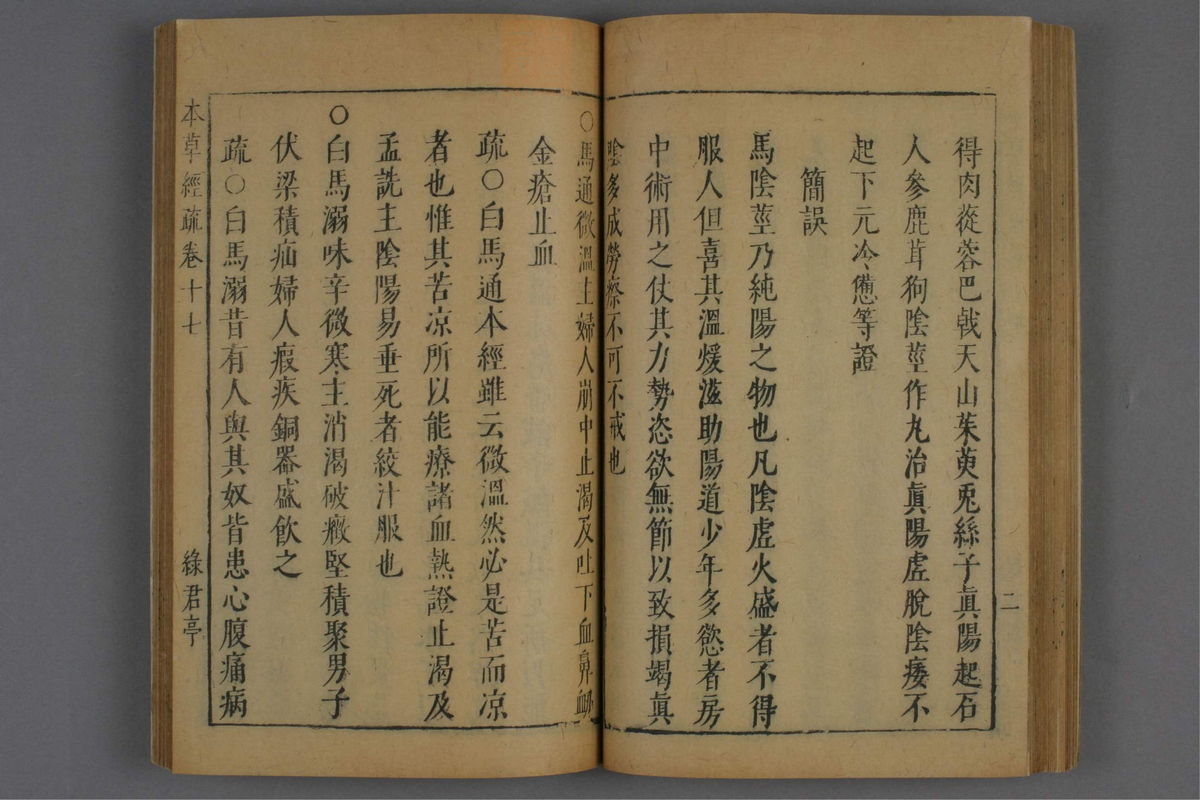 得肉蓯蓉巴戟天山茱萸兎絲子眞陽起石
人參鹿茸狗陰莖作丸治眞陽虗脫陰痿不
起下元冷憊等證
簡誤
馬陰莖乃純陽之物也凡陰虗火盛者不得
服人但喜其溫煖滋助陽道少年多慾者房
中術用之仗其力勢恣欲無節以致損竭眞
陰多成勞瘵不可不戒也
二
○馬通微溫主婦人崩中止渴及吐下血鼻衄
金瘡止血
疏○白馬通本經雖云微溫然必是苦而凉
者也惟其苦凉所以能療諸血熱證止渴及
孟詵主陰陽易垂死者絞汁服也
○白馬溺味辛微寒主消渴破癥堅積聚男子
伏梁積疝婦人瘕疾銅器盛飲之
疏○白馬溺昔有人與其奴皆患心腹痛病
本草經疏卷十七
綠君亭